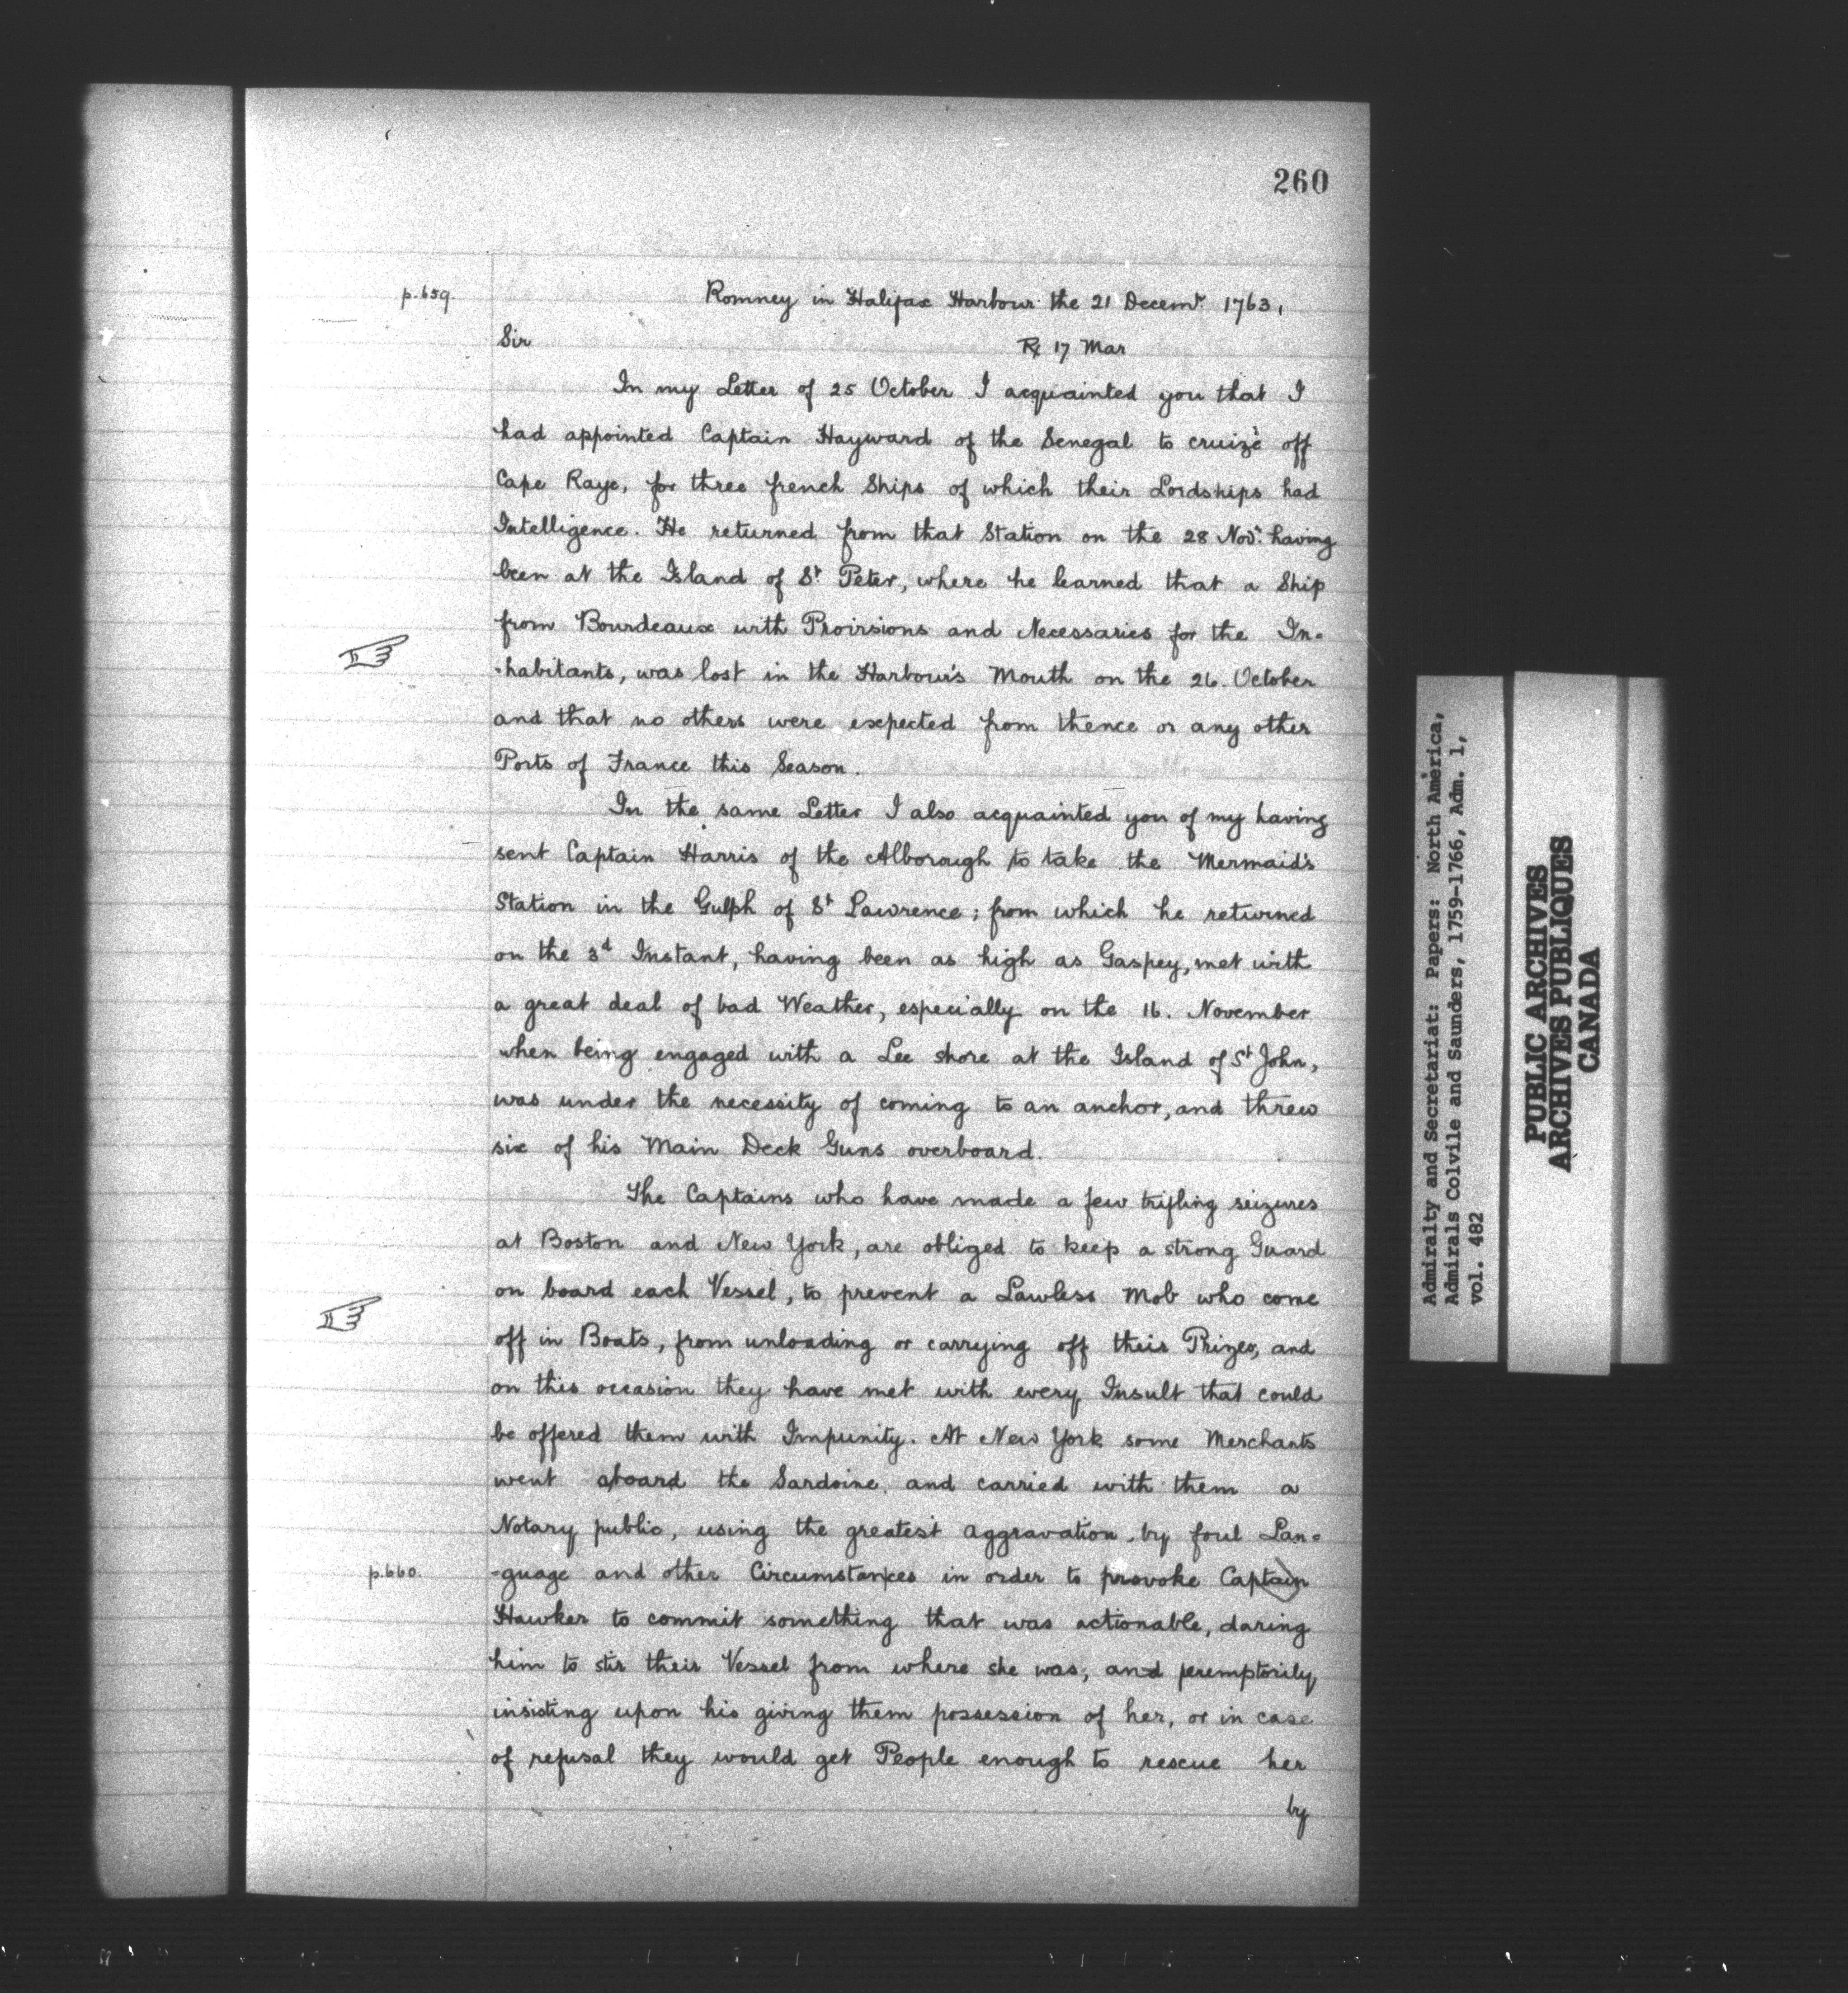 260
p.659.
Romney in Halifax Harbour the 21 Decemr 1763,
Sir
Rx 17 Mar
In my Letter of 25 October I acquainted you that I
had appointed Captain Hayward of the Senegal to cruize off
Cape Raye, for three french Ships of which their Lordships had
Intelligence. He returned from that Station on the 28 Novr. having
been at the Island of St Peter, where he learned that a Ship
from Bourdeaux with Provisions and Necessaries for the In=
-habitants, was lost in the Harbour's Mouth on the 26. October
and that no others were expected from thence or any other
Ports of France this Season.
In the same Letter I also acquainted you of my having
sent Captain Harris of the Alborough to take the Mermaid's
Station in the Gulph of St Lawrence; from which he returned
on the 3d Instant, having been as high as Gaspey, met with
a great deal of bad Weather, especially on the 16. November
when being engaged with a Lee shore at the Island of St John,
was under the necessity of coming to an anchor, and threw
six of his Main Deck Guns overboard.
The Captains who have made a few trifling seizures
at Boston and New York, are obliged to keep a strong Guard
on board each Vessel, to prevent a Lawless Mob who come
off in Boats, from unloading or carrying off their Prizes, and
on this occasion they have met with every Insult that could
be offered them with Impunity. At New York some Merchants
went aboard the Sardoine, and carried with them a
Notary public, using the greatest aggravation, by foul Lan=
p.660.
=guage and other Circumstances in order to provoke Captain
Hawker to commit something that was actionable, daring
him to stir their Vessel from where she was, and peremptorily
insisting upon his giving them possession of her, or in case
of refusal they would get People enough to rescue her
by
Admiralty and Secretariat: Papers: North America,
Admirals Colvile and Saunders, 1759-1766, Adm. 1,
vol. 482
PUBLIC ARCHIVES
ARCHIVES PUBLIQUES
CANADA